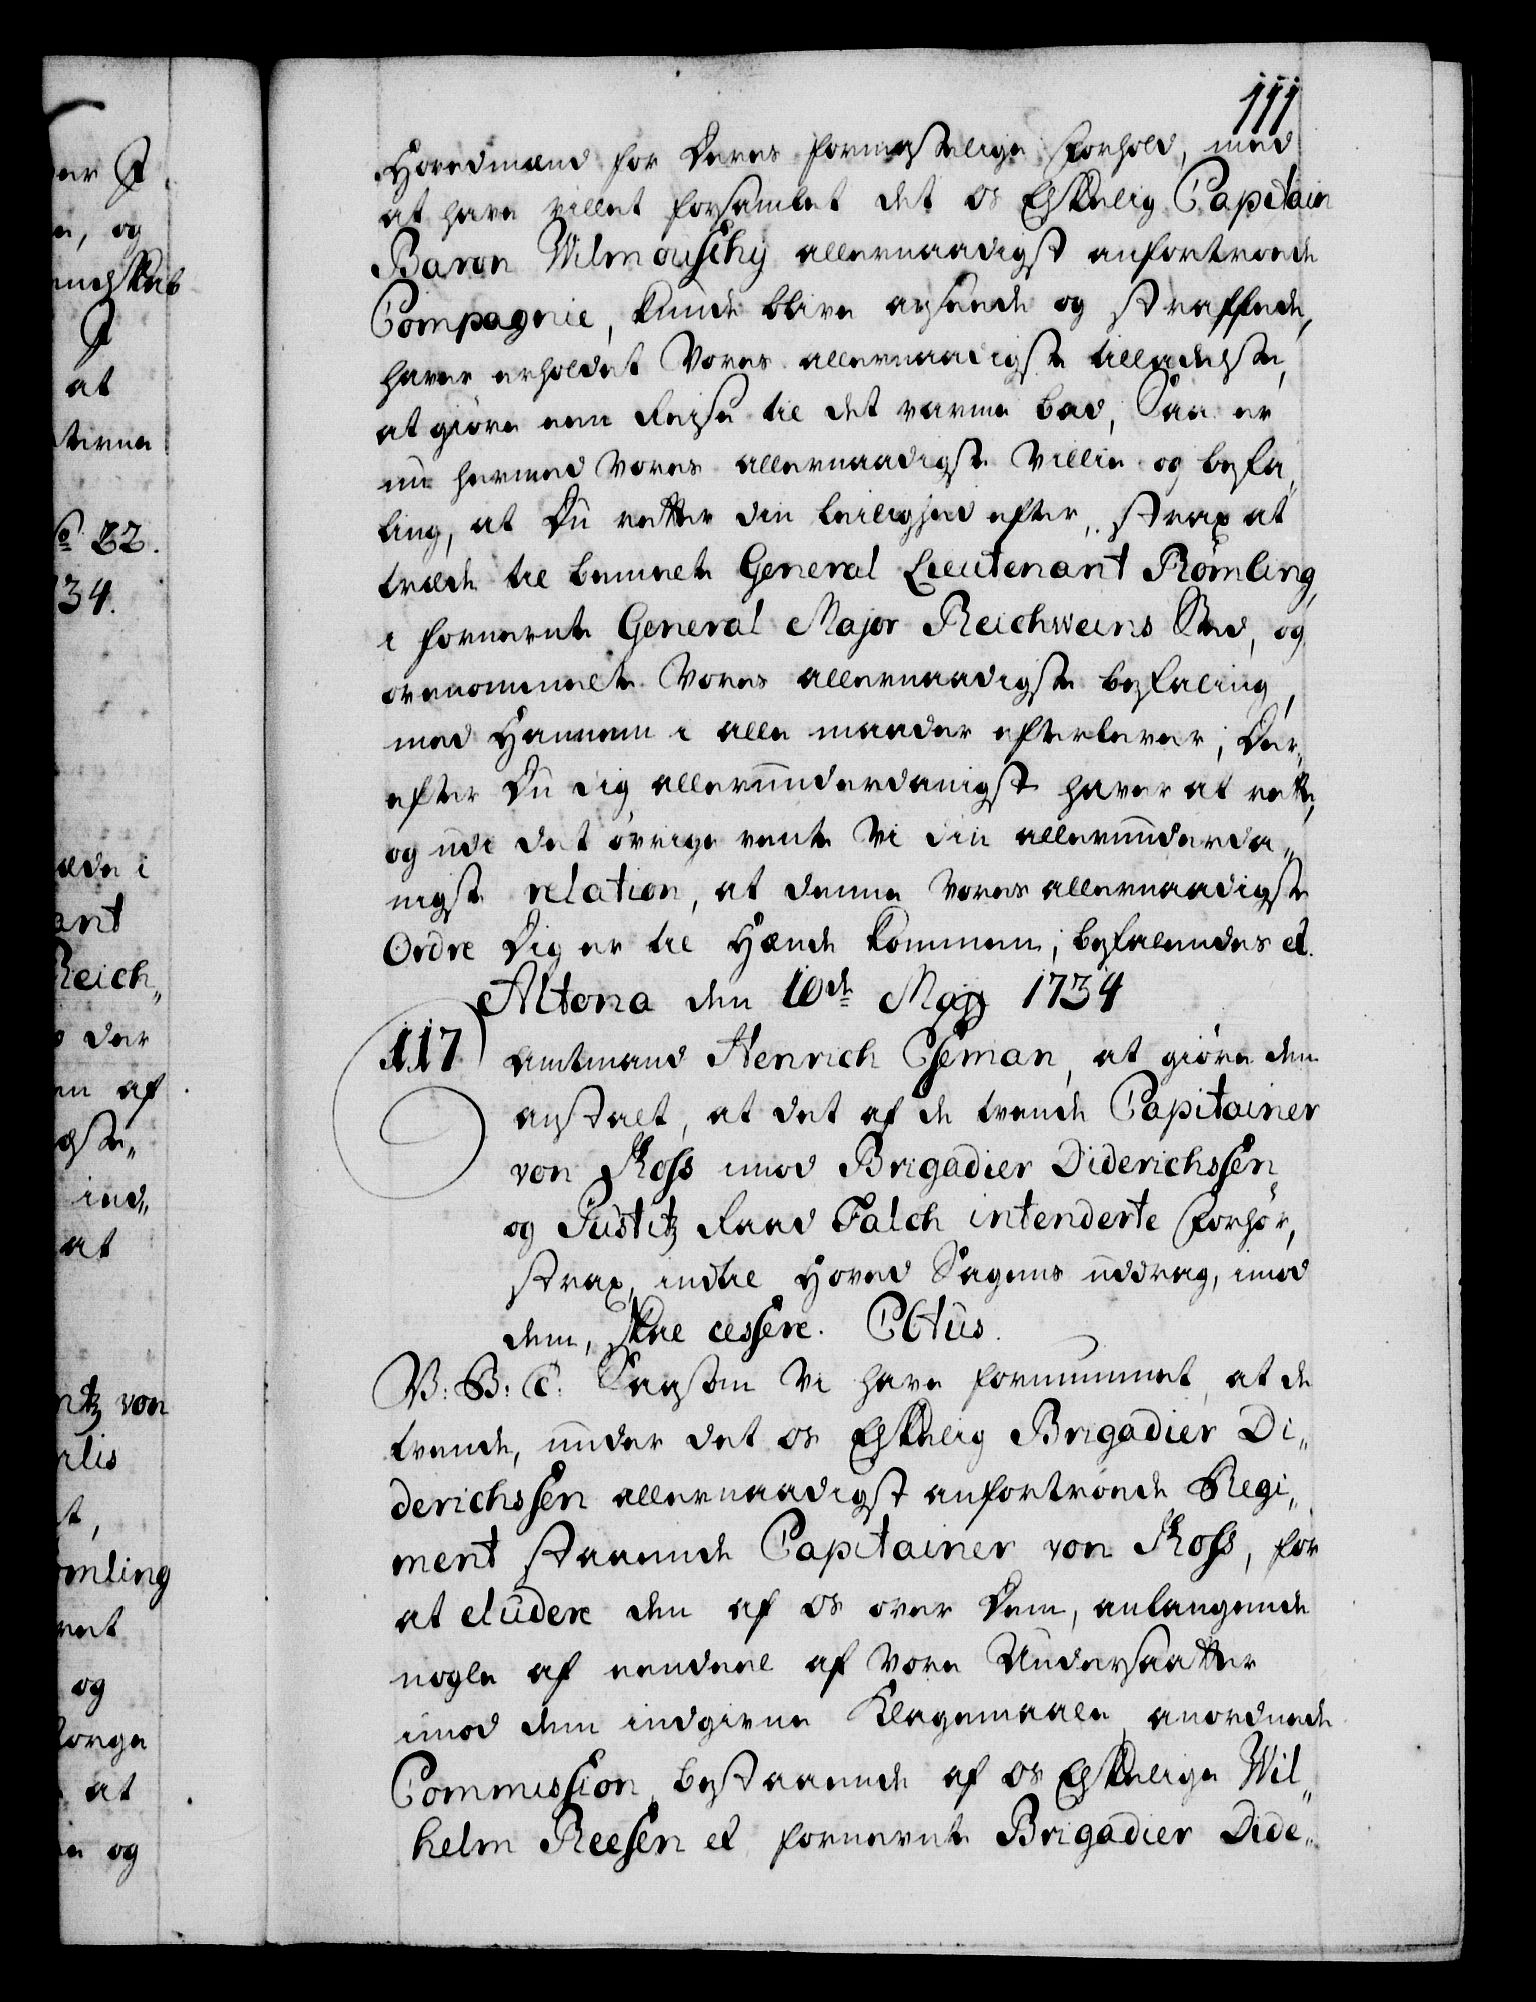 111
Hovedmænd for Deres formastelige forhold, med
at have villet forsamlet det os Elskelig Capitain
Baron Wilmouschy allernaadigst anfortroede
Compagnie, kunde blive anseede og straffede,
haver erholdet Vores allernaadigste tilladelse,
at giøre een Reise til det varme bad, Saa er
nu hermed Vores allernaadigste Villie og befa„
ling, at Du retter din leilighed efter, strax at
træde til bemelte General Lieutenant Römling,
i fornevnte General Major Reichweins Sted, og
ovenommelte Vores allernaadigste befaling,
med Hannem i alle maader efterlever; Der„
efter Du dig allerunderdanigst haver at rette,
og udi det øvrige vente Vi din allerunderda„
nigst relation, at denne Vores allernaadigste
Ordre Dig er til Hænde kommen, befalendes et.
Altona den 10de Maji 1734
117
Amtmand Henrich Eseman, at giøre den
anstalt, at det af de tvende Capitainer
von Koss imod Brigadier Diderichssen,
og Justitz Raad Falch intenderte forhør,
strax, indtil Hoved Sagens uddrag, imod
dem, skal cessere. Cltus.
V: B: C: Saasom Vi have fornummet, at de
tvende, under det os Elskelig Brigadier Di„
derichssen allernaadigst anfortroede Regi„
ment staaende Capitainer von Koss, for
at eludere den af os over Dem, anlangende
nogle af eendeel af Vore Undersaatter
imod dem indgivne Klagemaale, anordnede
Commission, bestaaende af os Elskelige Wil„
helm Reesen et fornevnte Brigadier Dide„